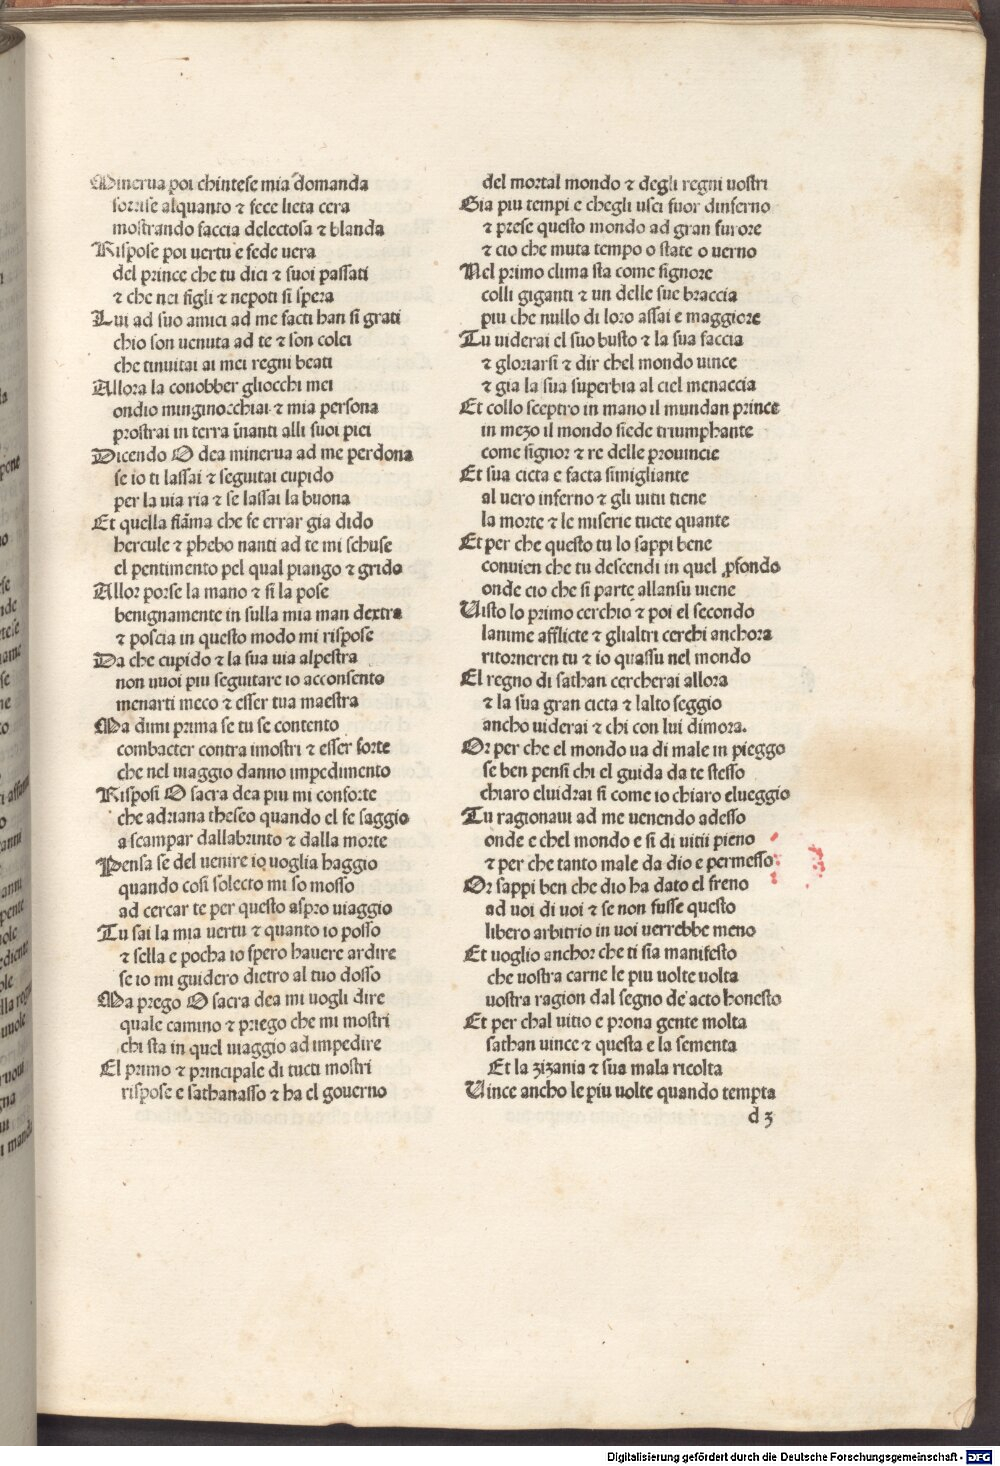 Minerua poi chintese mia domanda
sorrise alquanto ⁊ fece lieta cera
mostrando faccia delectosa ⁊ blanda
Rispose poi uertu e fede uera
del prince che tu dici ⁊ suoi passati
⁊ che nei figli ⁊ nepoti si spera
Lui ad suo amici ad me facti han si grati
chio son uenuta ad te ⁊ son colei
che tinuitai ai mei regni beati
Allora la conobber gliocchi mei
ondio minginocchiai ⁊ mia persona
prostrai in terra īnanti alli suoi piei
Dicendo O dea minerua ad me perdona
se io ti lassai ⁊ seguitai cupido
per la uia ria ⁊ se lassai la buona
Et quella fiāma che fe errar gia dido
hercule ⁊ phebo nanti ad te mi schuse
el pentimento pel qual piango ⁊ grido
Allor porse la mano ⁊ si la pose
benignamente in sulla mia man dextra
⁊ poscia in questo modo mi rispose
Da che cupido ⁊ la sua uia alpestra
non uuoi piu seguitare io acconsento
menarti meco ⁊ esser tua maestra
Ma dimi prima se tu se contento
combacter contra imostri ⁊ esser forte
che nel uiaggio danno impedimento
Risposi O sacra dea piu mi conforte
che adriana theseo quando el fe saggio
a scampar dallabrinto ⁊ dalla morte
Pensa se del uenire io uoglia haggio
quando cosi solecto mi so mosso
ad cercar te per questo aspro uiaggio
Tu sai la mia uertu ⁊ quanto io posso
⁊ sella e pocha io spero hauere ardire
se io mi guidero dietro al tuo dosso
Ma prego O sacra dea mi uogli dire
quale camino ⁊ priego che mi mostri
chi sta in quel uiaggio ad impedire
El primo ⁊ principale di tucti mostri
rispose e sathanasso ⁊ ha el gouerno
del mortal mondo ⁊ degli regni uostri
Gia piu tempi e chegli usci fuor dinferno
⁊ prese questo mondo ad gran furore
⁊ cio che muta tempo o state o uerno
Nel primo clima sta come signore
colli giganti ⁊ un delle sue braccia
piu che nullo di loro assai e maggiore
Tu uiderai el suo busto ⁊ la sua faccia
⁊ gloriarsi ⁊ dir chel mondo uince
⁊ gia la sua superbia al ciel menaccia
Et collo sceptro in mano il mundan prince
in mezo il mondo siede triumphante
come signor ⁊ re delle prouincie
Et sua cicta e facta simigliante
al uero inferno ⁊ gli uitii tiene
la morte ⁊ le miserie tucte quante
Et per che questo tu lo sappi bene
conuien che tu descendi in quel ꝓfondo
onde cio che si parte allansu uiene
Uisto lo primo cerchio ⁊ poi el secondo
lanime afflicte ⁊ glialtri cerchi anchora
ritorneren tu ⁊ io quassu nel mondo
El regno di sathan cercherai allora
⁊ la sua gran cicta ⁊ lalto seggio
ancho uiderai ⁊ chi con lui dimora.
Or per che el mondo ua di male in pieggo
se ben pensi chi el guida da te stesso
chiaro eluidrai si come io chiaro elueggio
Tu ragionaui ad me uenendo adesso
onde e chel mondo e si di uitii pieno
⁊ per che tanto male da dio e permesso
Or sappi ben che dio ha dato el freno
ad uoi di uoi ⁊ se non fusse questo
libero arbitrio in uoi uerrebbe meno
Et uoglio anchor che ti sia manifesto
che uostra carne le piu uolte uolta
uostra ragion dal segno de acto honesto
Et per chal uitio e prona gente molta
sathan uince ⁊ questa e la sementa
Et la zizania ⁊ sua mala ricolta
Uince ancho le piu uolte quando tempta
d 3
Digitalisierung gefördert durch die Deutsche Forschungsgemeinschaft - DFG